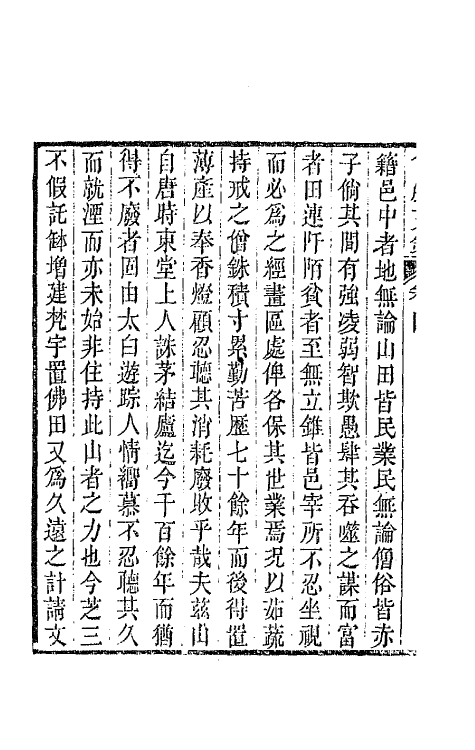 籍邑中者地無論山田皆民業民無論僧俗皆赤
子倘其間有強凌弱智欺愚肆其吞噬之謀而富
者田連阡陌貧者至無立錐皆邑宰所不忍坐視
而必為之經畫區處俾各保其世業焉况以茹蔬
持戒之僧銖積寸累勤苦歷七十餘年而後得置
薄產以奉香燈顧忍聽其消耗廢敗乎哉夫茲山
自唐時東堂上人誅茅結廬迄今千百餘年而猶
得不廢者固由太白遊踪人情嚮慕不忍聽其久
而就湮而亦未始非住持此山者之力也今芝三
不假託缽增建梵宇置佛田又為久遠之計請文